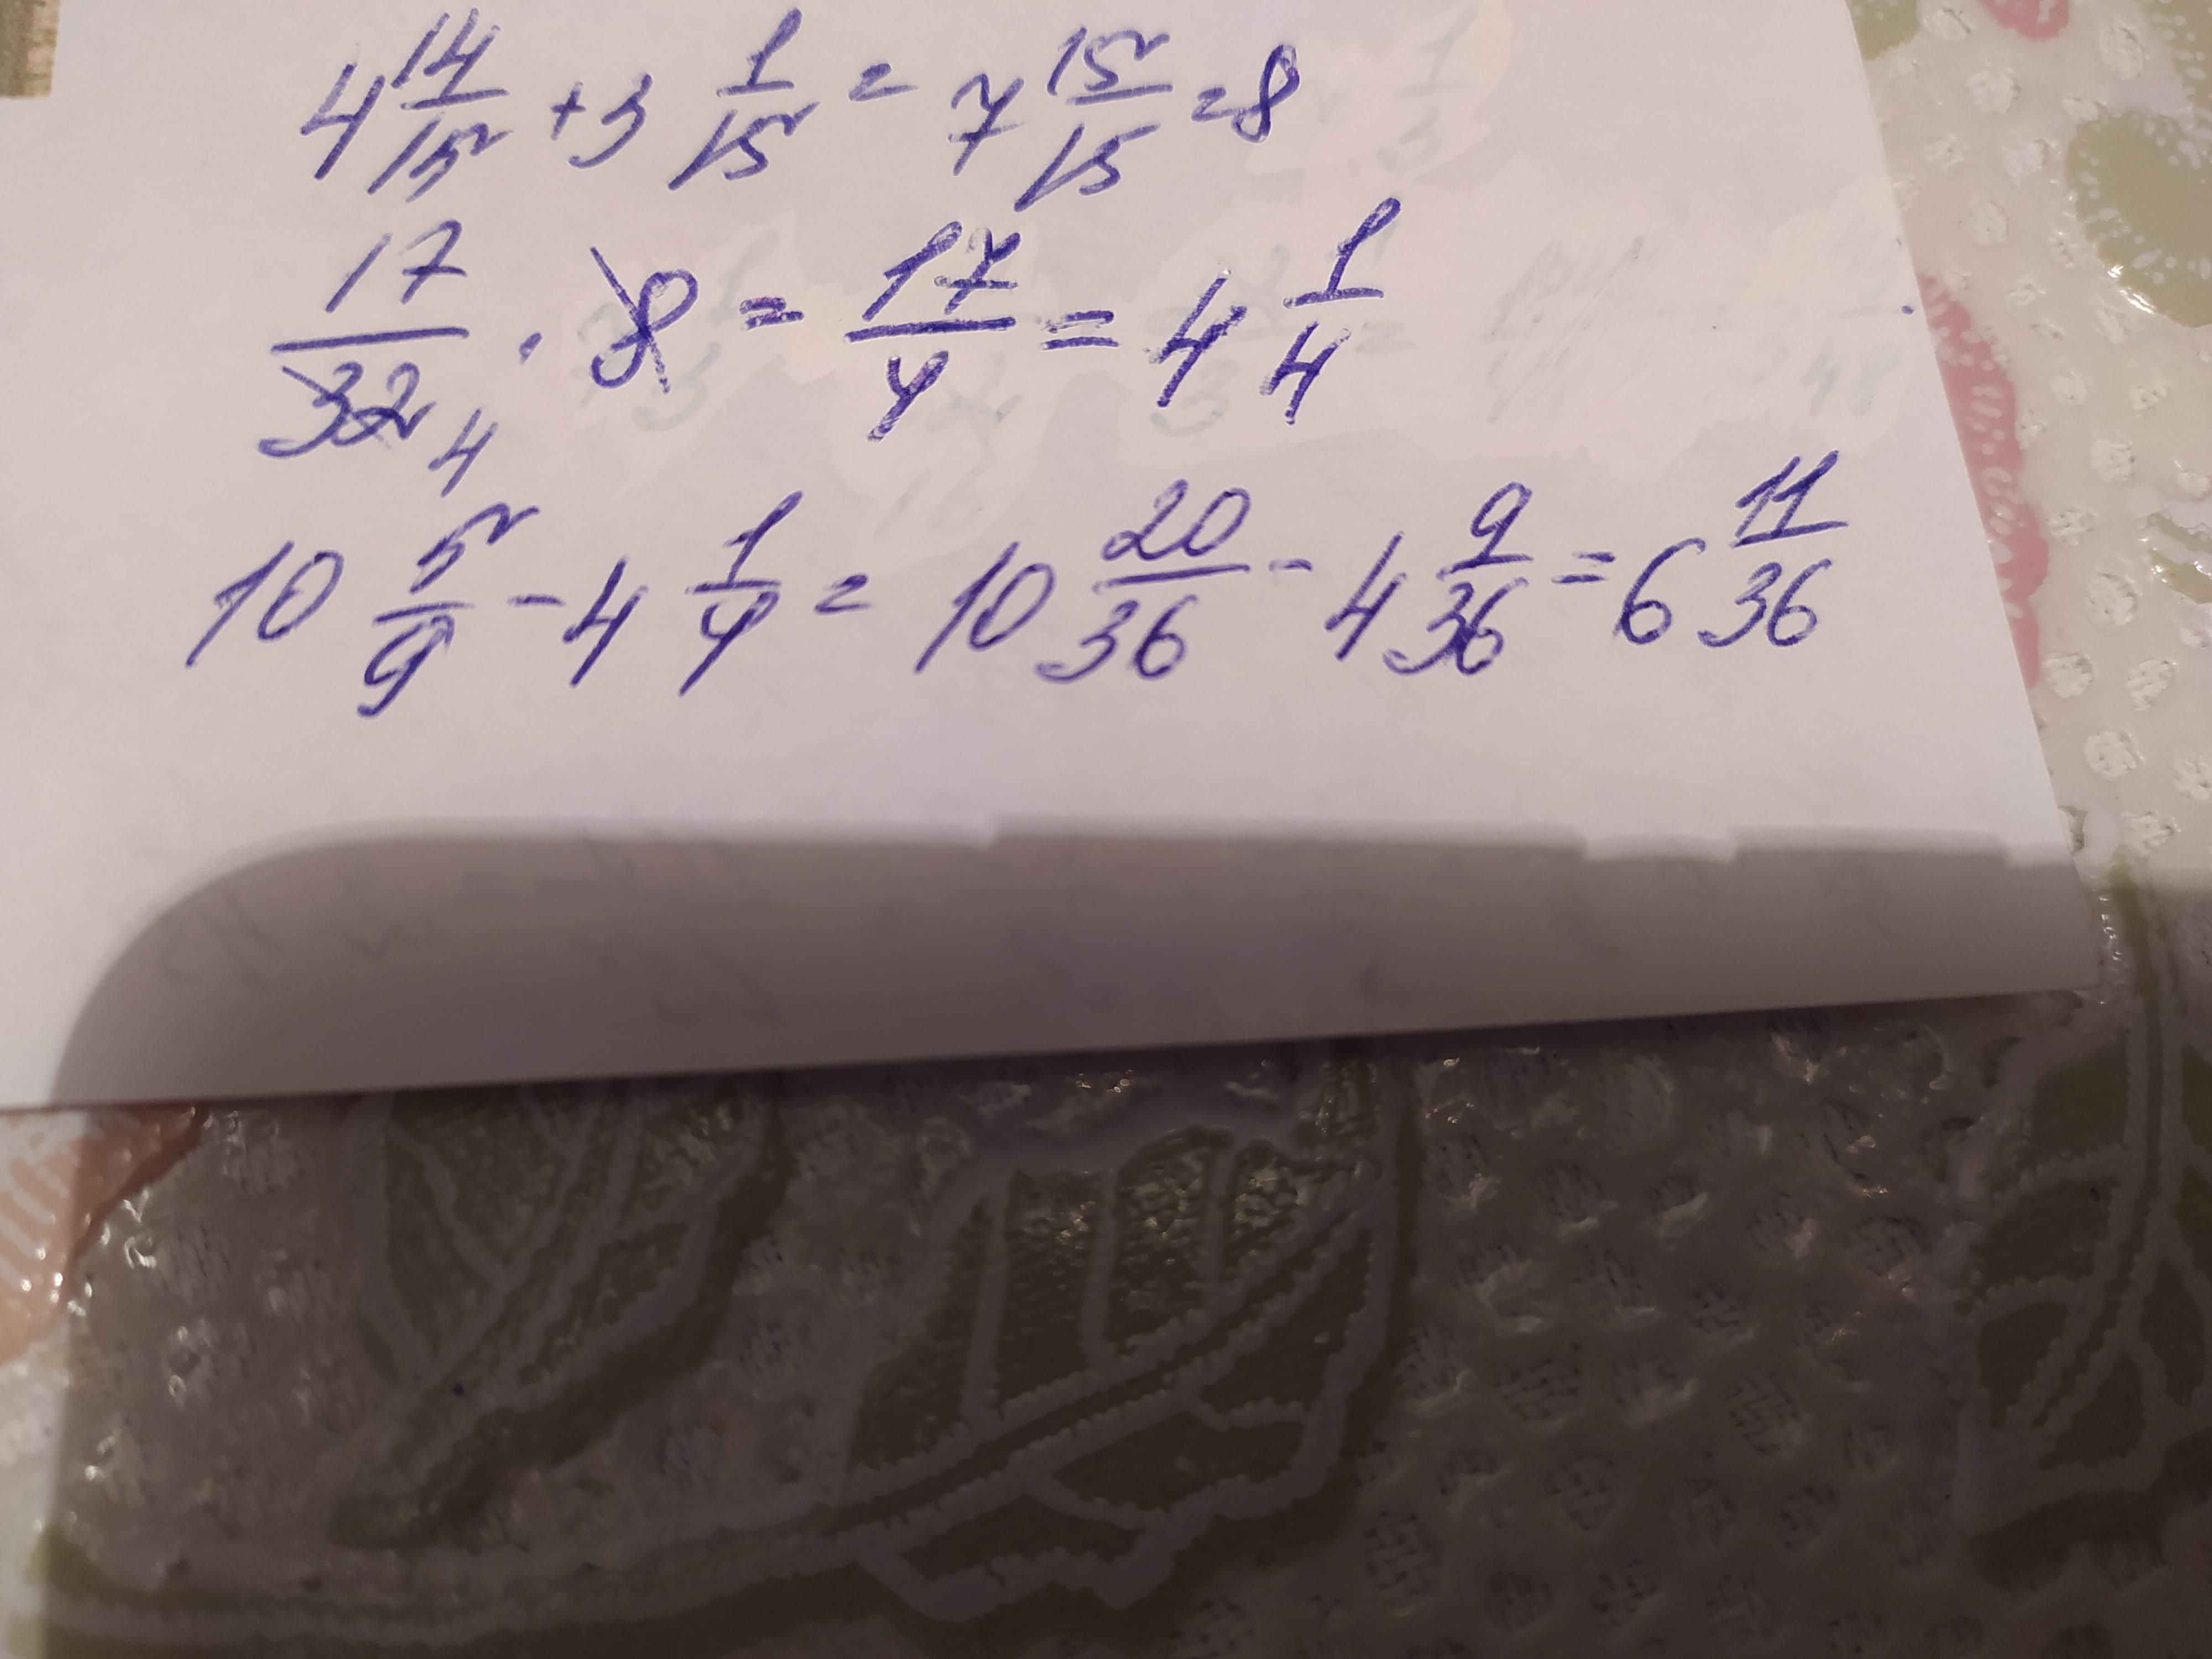 4 14/15 + 3 1/15 = 7 15/15 = 8
17/32 4 · 8 = 17/4 = 4 1/4
10 5/9 - 4 1/4 = 10 20/36 - 4 9/36 = 6 11/36